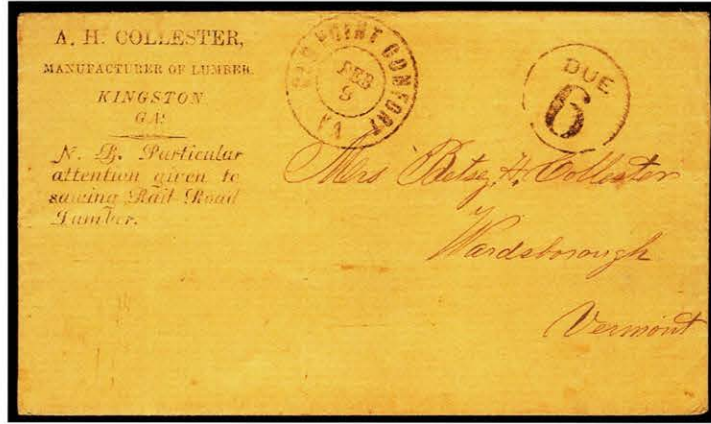 A. H. COLLESTER,
MANUFACTURER OF LUMBER.
KINGSTON
GA.
N. B. Particular
attention given to
sawing Rail Road
Lumber.
OLD POINT COMFORT
FEB
9
VA
DUE
6
Mrs Betsy H. Collester
Wardsborough
Vermont